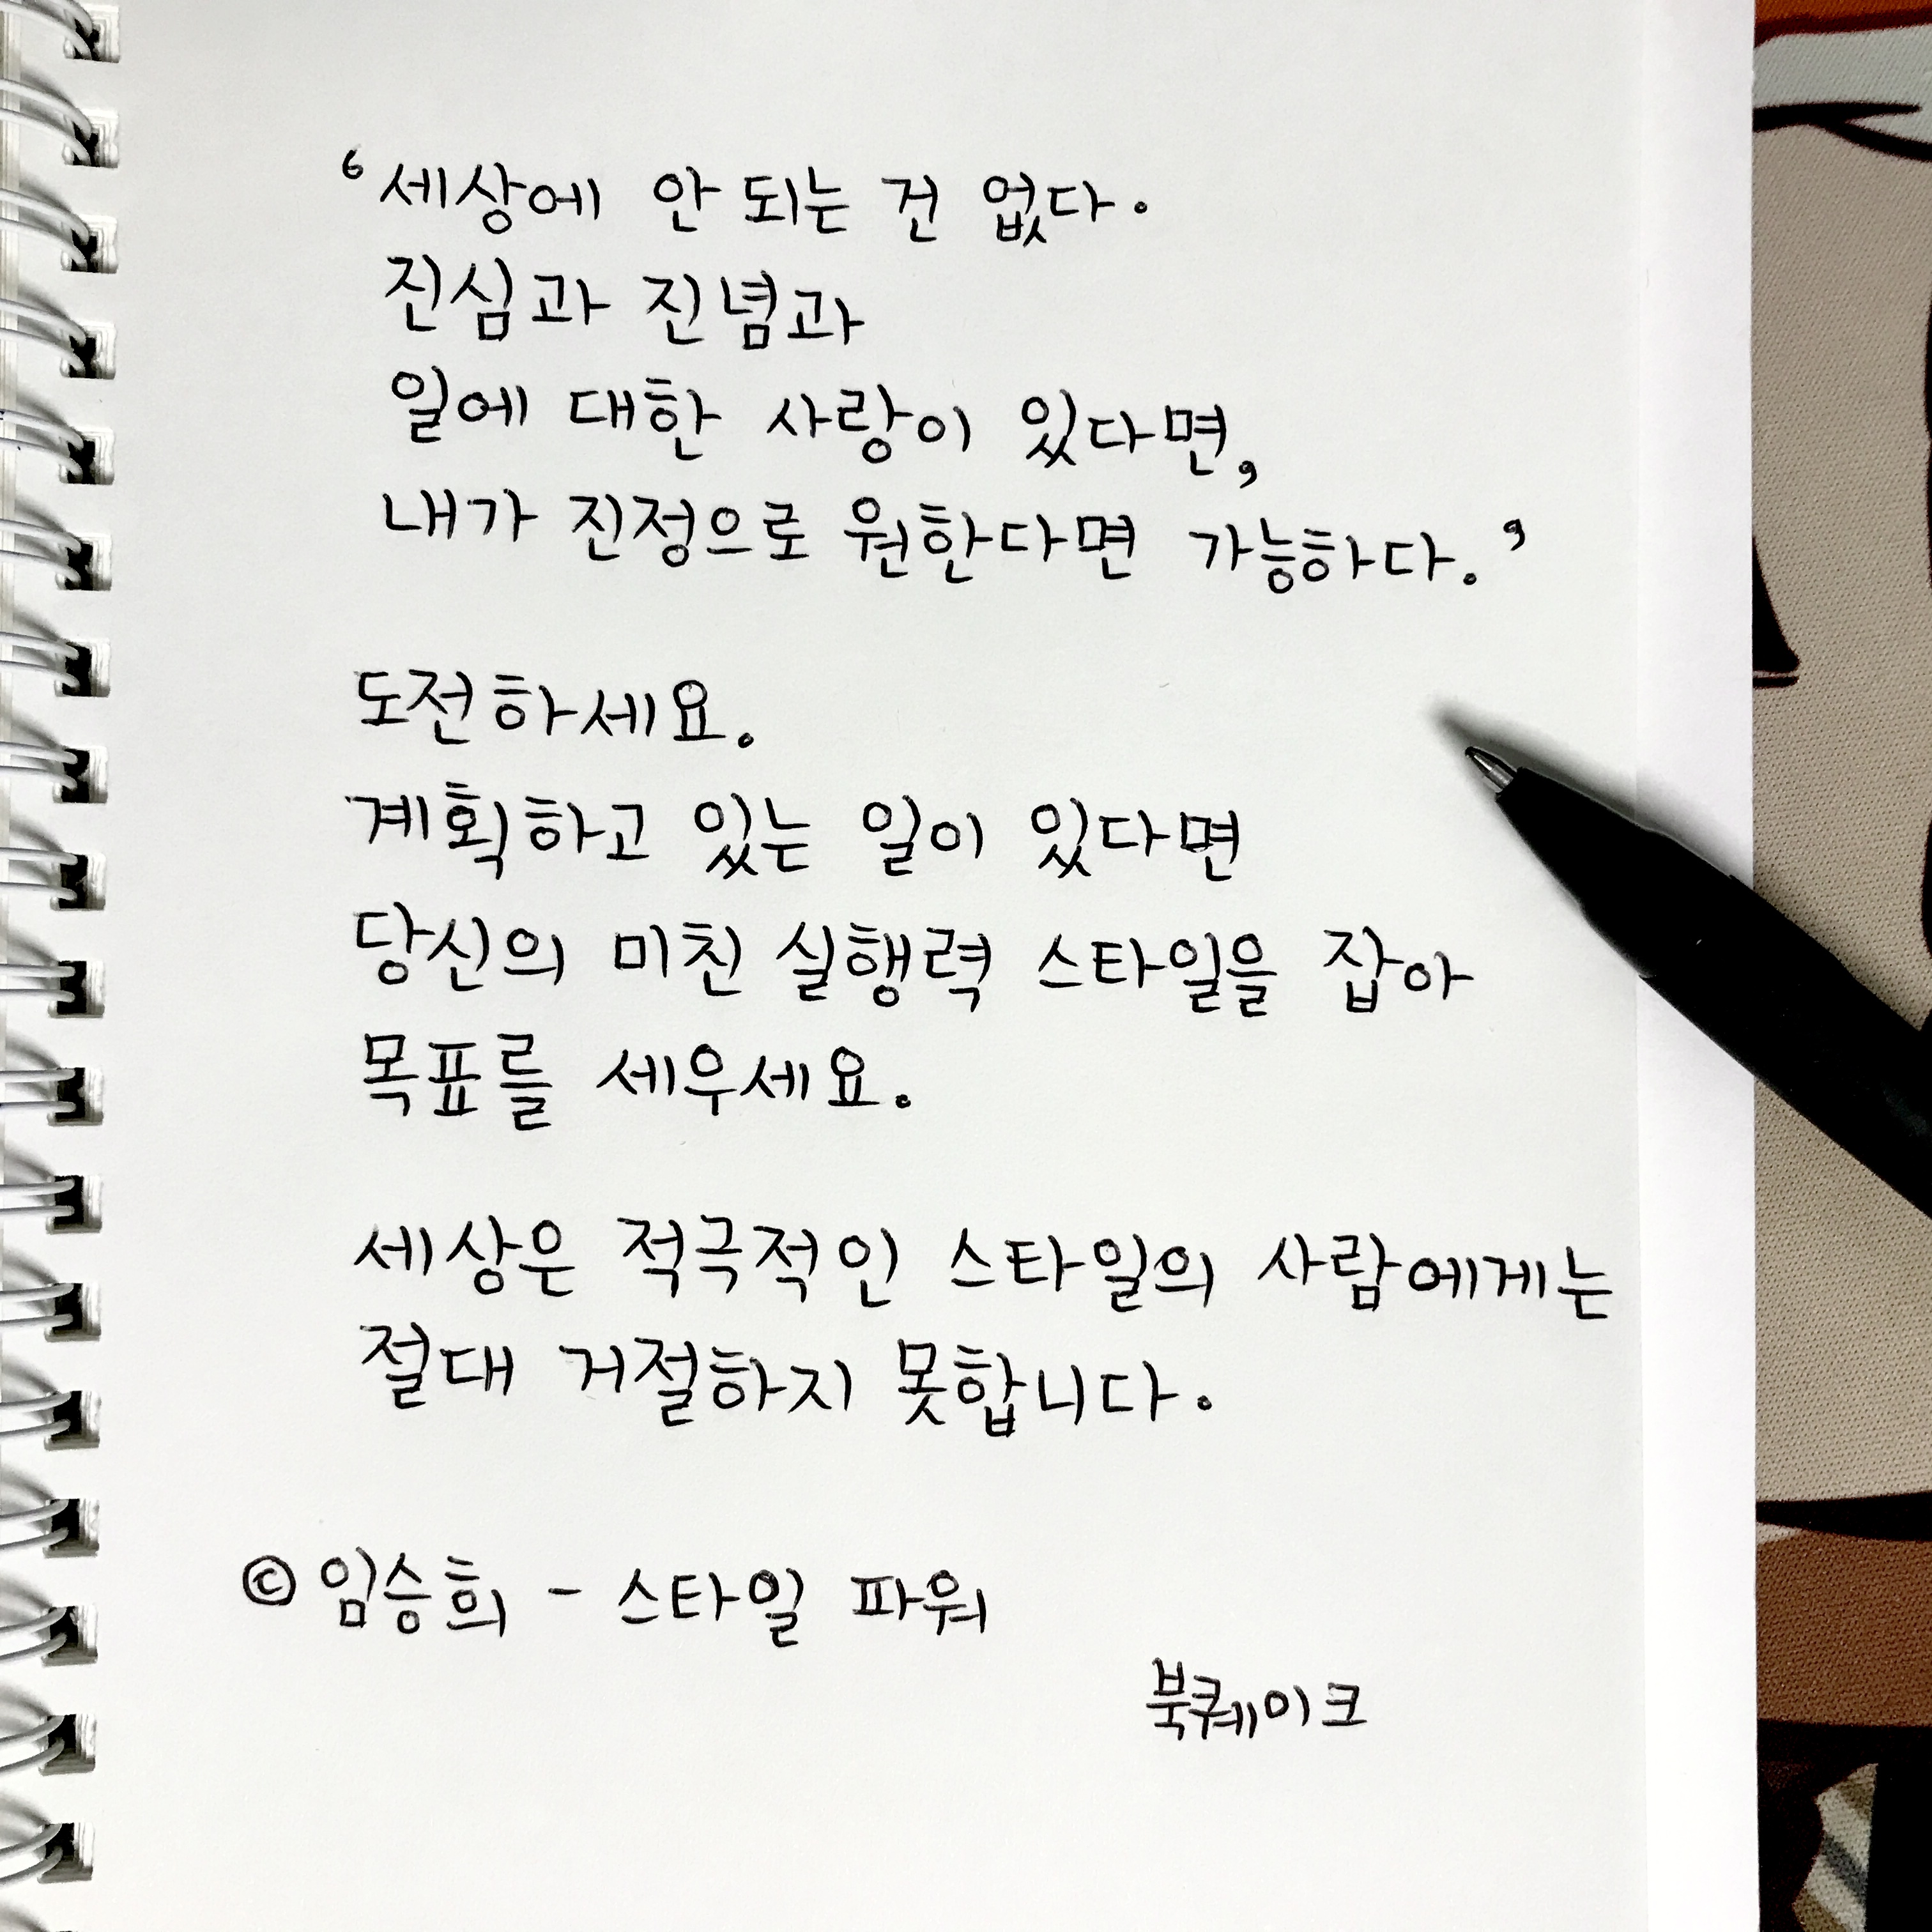 ‘세상에 안 되는 건 없다.
진심과 진념과
일에 대한 사랑이 있다면,
내가 진정으로 원한다면 가능하다.’
도전하세요.
계획하고 있는 일이 있다면
당신의 미친 실행력 스타일을 잡아
목표를 세우세요.
세상은 적극적인 스타일의 사람에게는
절대 거절하지 못합니다.
© 임승희 - 스타일 파워
북퀘이크